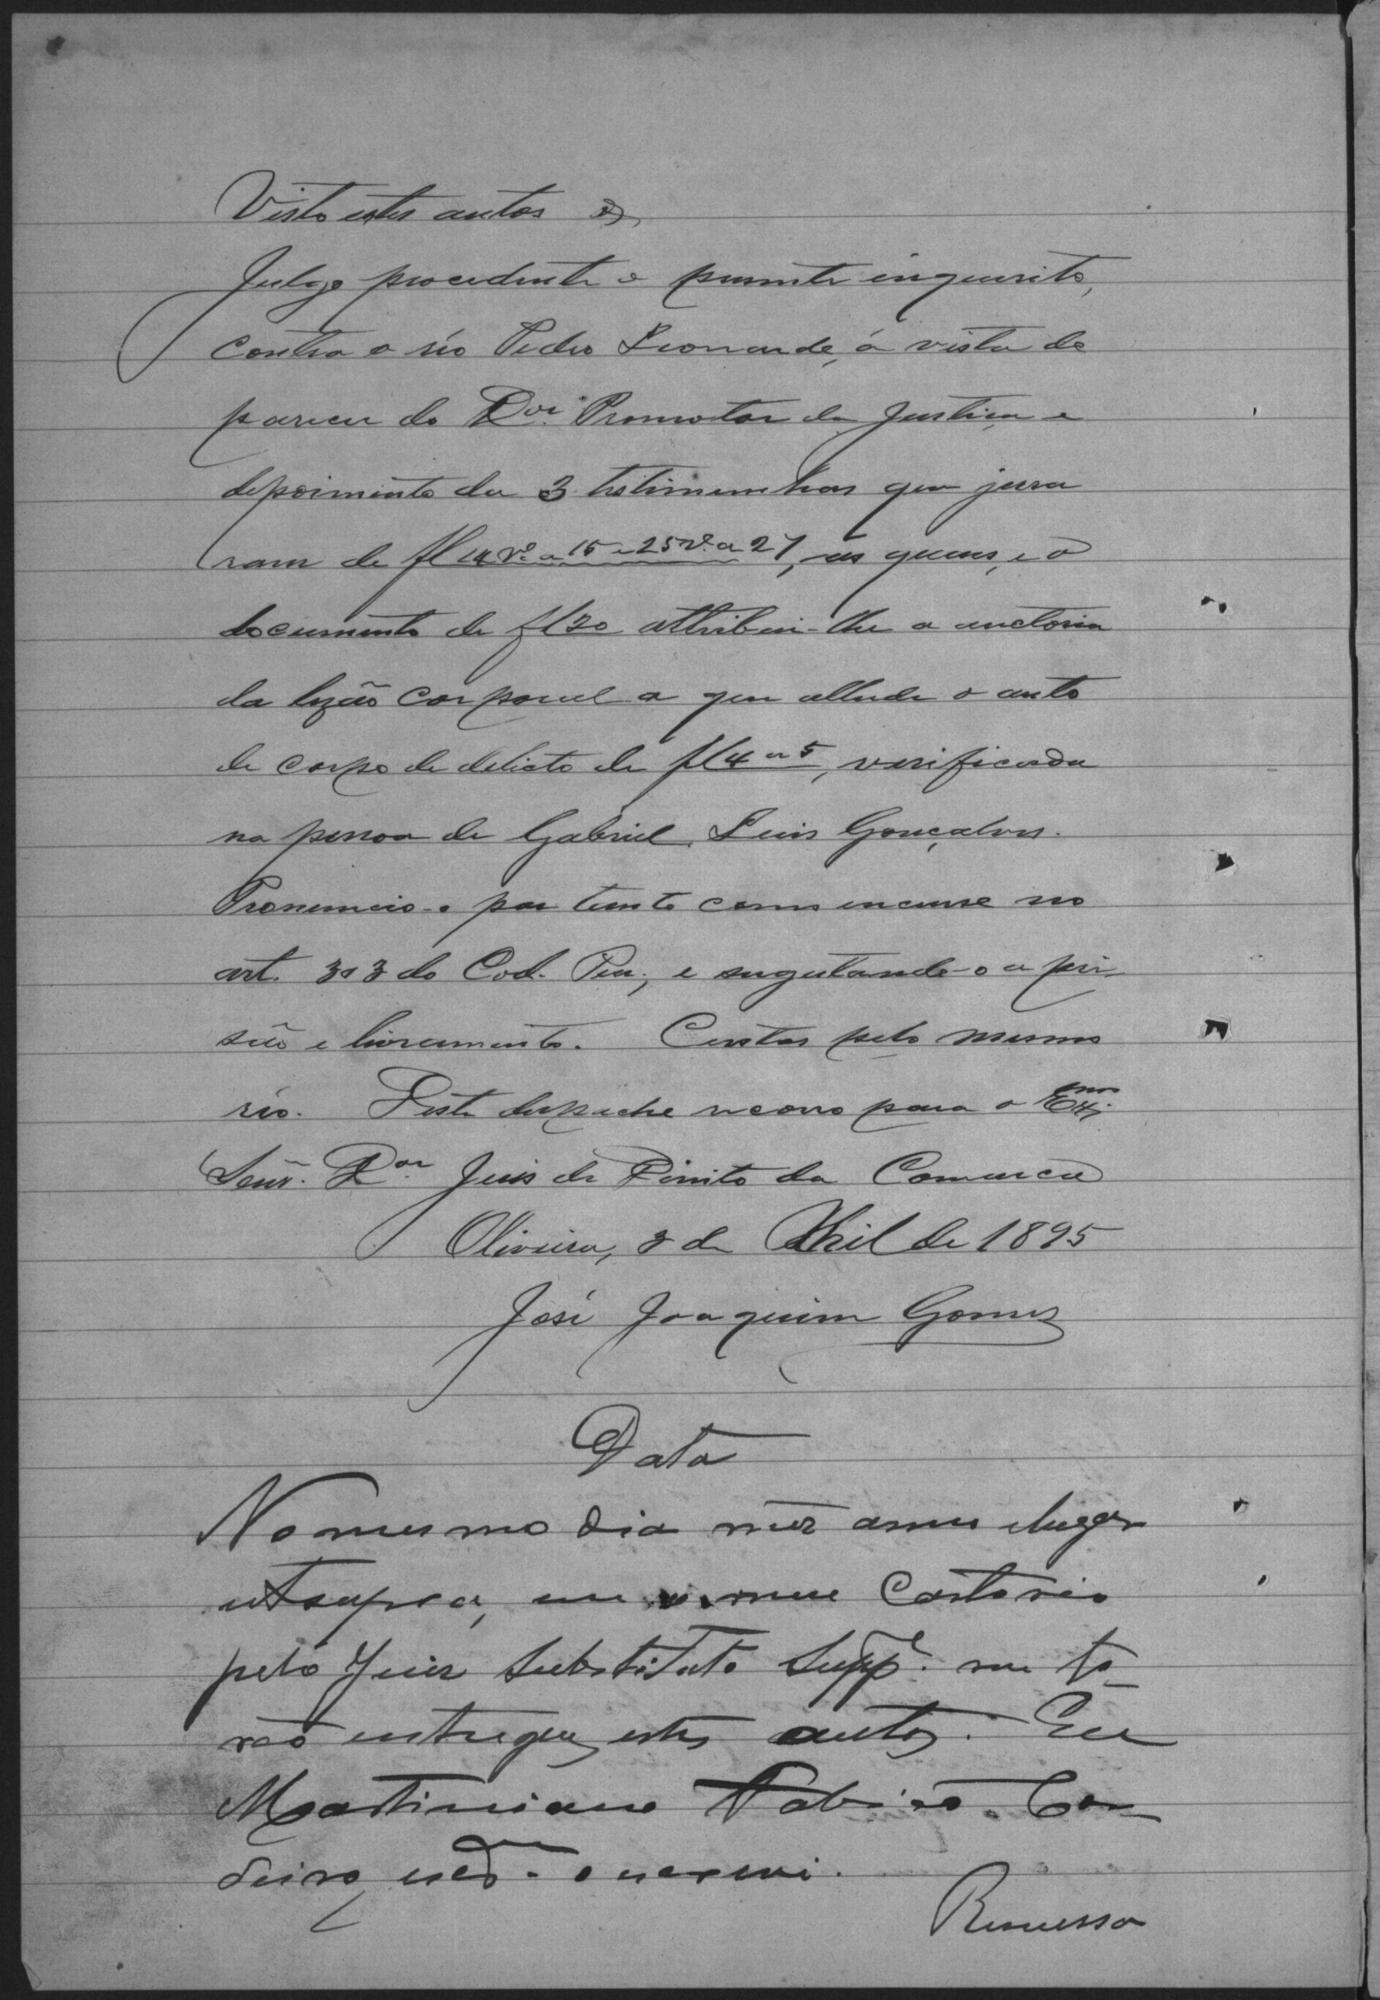 Visto estes autos &,
Julgo procedente o presente inquerito,
contra o réo Pedro Leonardo, á vista do
parecer do Dor. Promotor da Justiça e
depoimento da 3 testimunhas que jura
ram de fl 14 vo. a 15 e 25 vo. a 27, as quaes, e o
documento de fl 20 attribui-lhe a auctoria
da lezão corporal a que allude o auto
de corpo de delicto de fl 4 a 5, verificada
na pessoa de Gabriel Luis Gonçalves.
Pronuncio-o por tanto como incurso no
art. 303 do Cod. Pen., e sugeitando-o a pri
são e livramento. Custas pelo mesmo
réo. Deste despacho recorro para o Exmo.
Senr. Dor. Juis de Direito da Comarca
Oliveira, 3 de Abril de 1895
José Joaquim Gomes
Data
No mesmo dia mez anno e lugar
ut supra, em meu Cartorio
pelo Juiz Substituto Supp. me fo-
rão entregues estes autos. Eu
Martiniano Fabricio Cor
deiro, escr. o escrevi.
Remessa